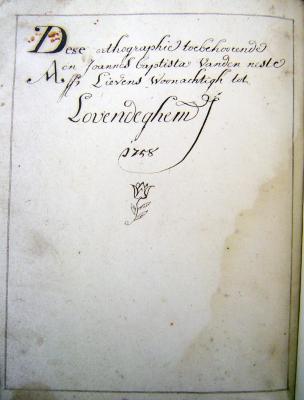 Dese orthographie toebehoorende
Aen Joannes baptista Vanden neste
Lievens Woonachtigh tot
Lovendeghem
1758